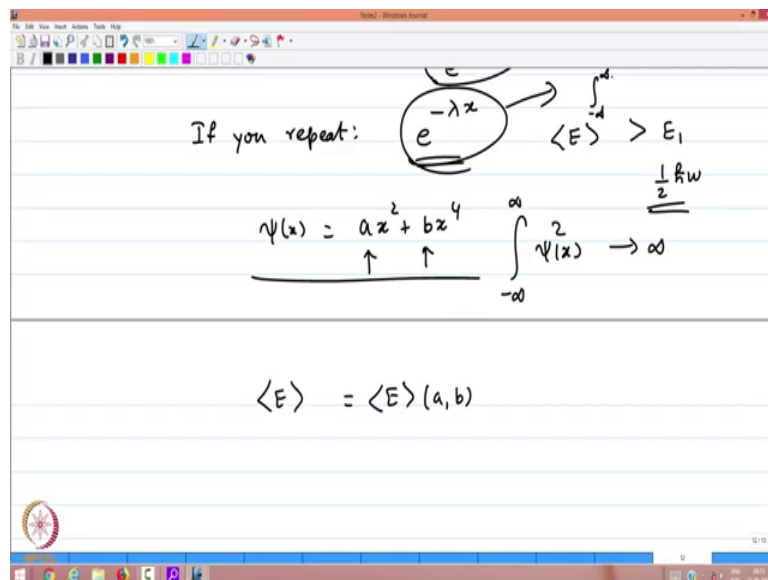 Note2 - Windows Journal
File Edit View Insert Actions Tools Help
e
∫_{-∞}^{∞}
If you repeat: e^{-λx} ⟨E⟩ > E₁
½ħω
ψ(x) = ax² + bx⁴ ∫_{-∞}^{∞} ψ²(x) → ∞
⟨E⟩ = ⟨E⟩(a,b)